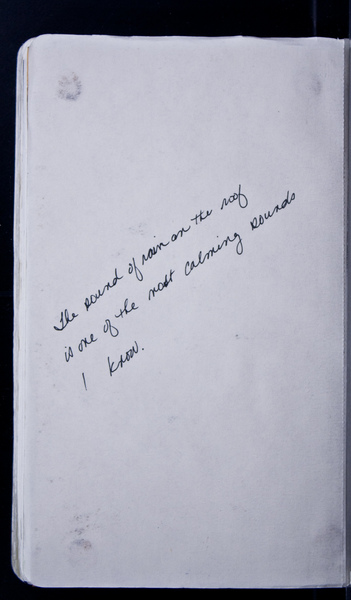 The sound of rain on the roof
is one of the most calming sounds
I know.